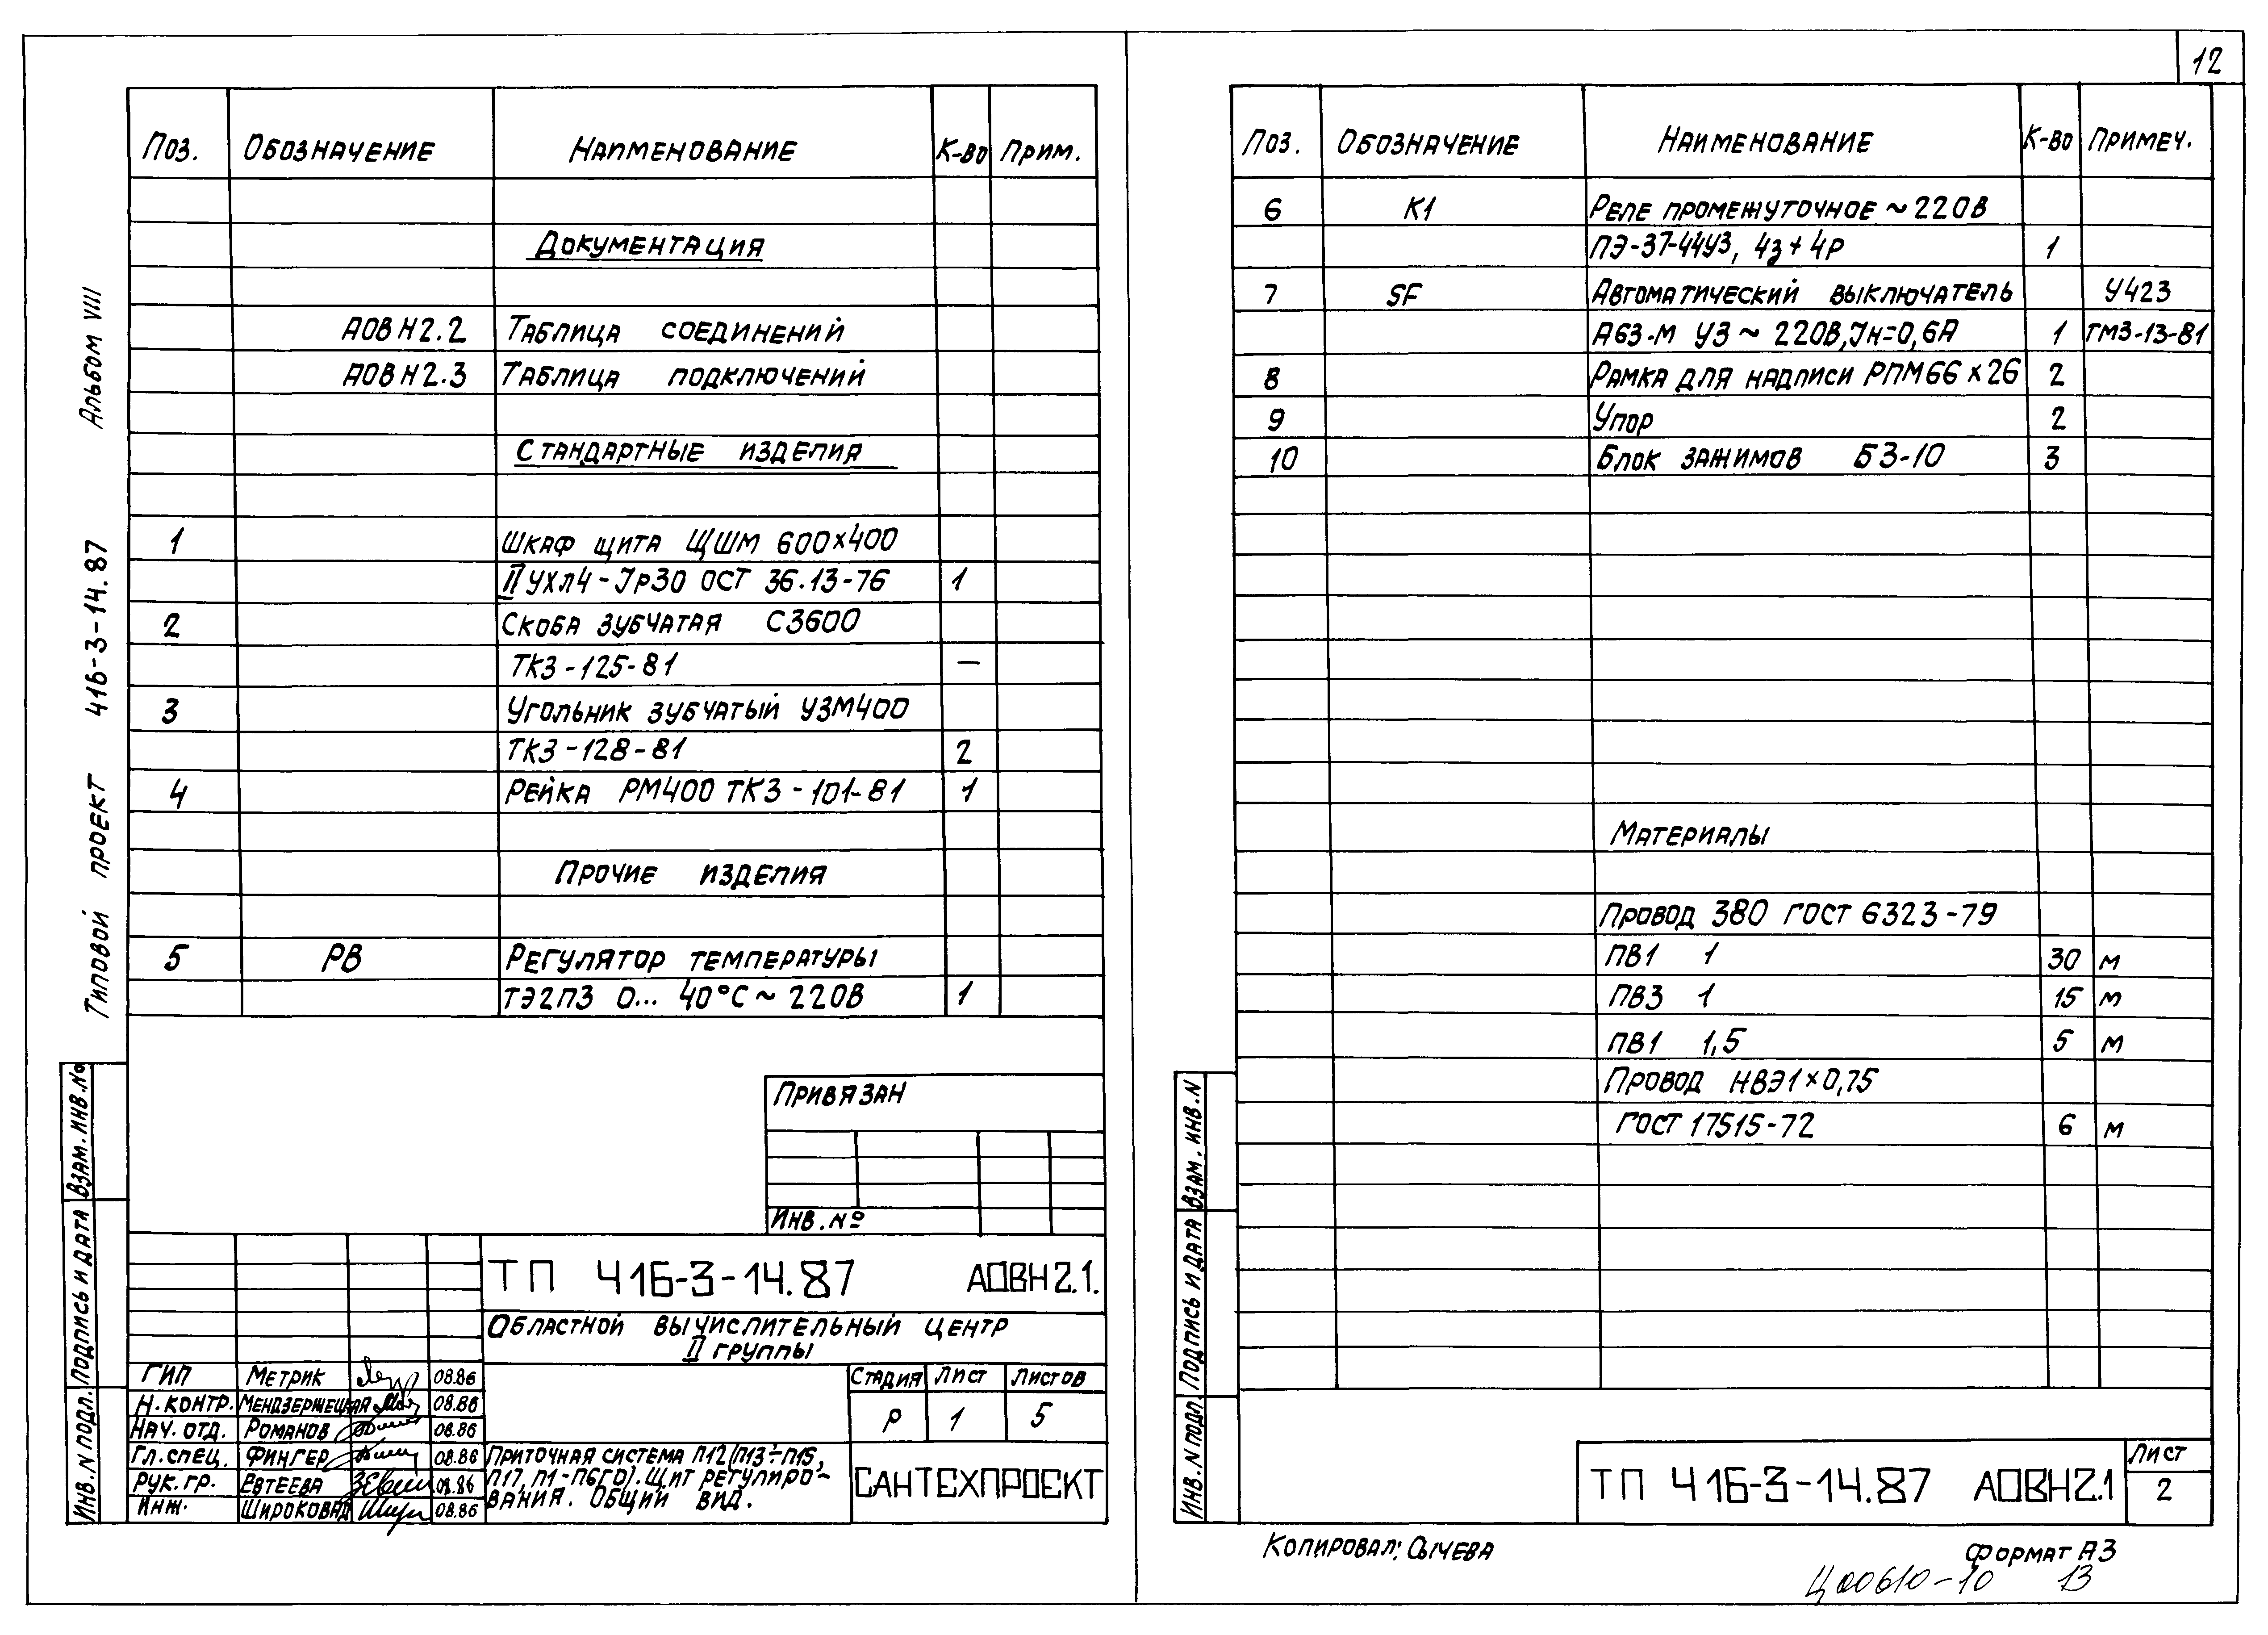 12
Альбом VIII
Типовой проект 416-3-14.87
Поз. Обозначение Наименование К-во Прим.
Документация
АОВ Н2.2 Таблица соединений
АОВ Н2.3 Таблица подключений
Стандартные изделия
1 Шкаф щита ЩШМ 600х400
II УХЛ4-Јр30 ОСТ 36.13-76 1
2 Скоба зубчатая С3600
ТК3-125-81 —
3 Угольник зубчатый УЗМ400
ТК3-128-81 2
4 Рейка РМ400 ТК3-101-81 1
Прочие изделия
5 РВ Регулятор температуры
ТЭ2П3 0... 40°С ~ 220В 1
Привязан
Инв. №
ТП 416-3-14.87 АОВН2.1.
Областной вычислительный центр
II группы
Стадия Лист Листов
Р 1 5
ГИП Метрик 08.86
Н.контр. 08.86
Нач. отд. Романов 08.86
Гл.спец. Фингер 08.86
Рук.гр. Евтеева 08.86
Инж. Широкова 08.86
Приточная система П12(П13÷П15,
П17, П1-П6ГО). Щит регулиро-
вания. Общий вид.
САНТЕХПРОЕКТ
Инв. N подл. Подпись и дата Взам. инв. №
Поз. Обозначение Наименование К-во Примеч.
6 К1 Реле промежуточное ~ 220В
ПЭ-37-44У3, 4з + 4р 1
7 SF Автоматический выключатель У423
А63-М У3 ~ 220В, Јн=0,6А 1 ТМ3-13-81
8 Рамка для надписи РПМ 66 х 26 2
9 Упор 2
10 Блок зажимов БЗ-10 3
Материалы
Провод 380 ГОСТ 6323-79
ПВ1 1 30 м
ПВ3 1 15 м
ПВ1 1,5 5 м
Провод НВЭ1х0,75
ГОСТ 17515-72 6 м
Инв. N подл. Подпись и дата Взам. инв. N
ТП 416-3-14.87 АОВН2.1
Лист
2
Копировал: Сычева Формат А3
Ц00610-10 13